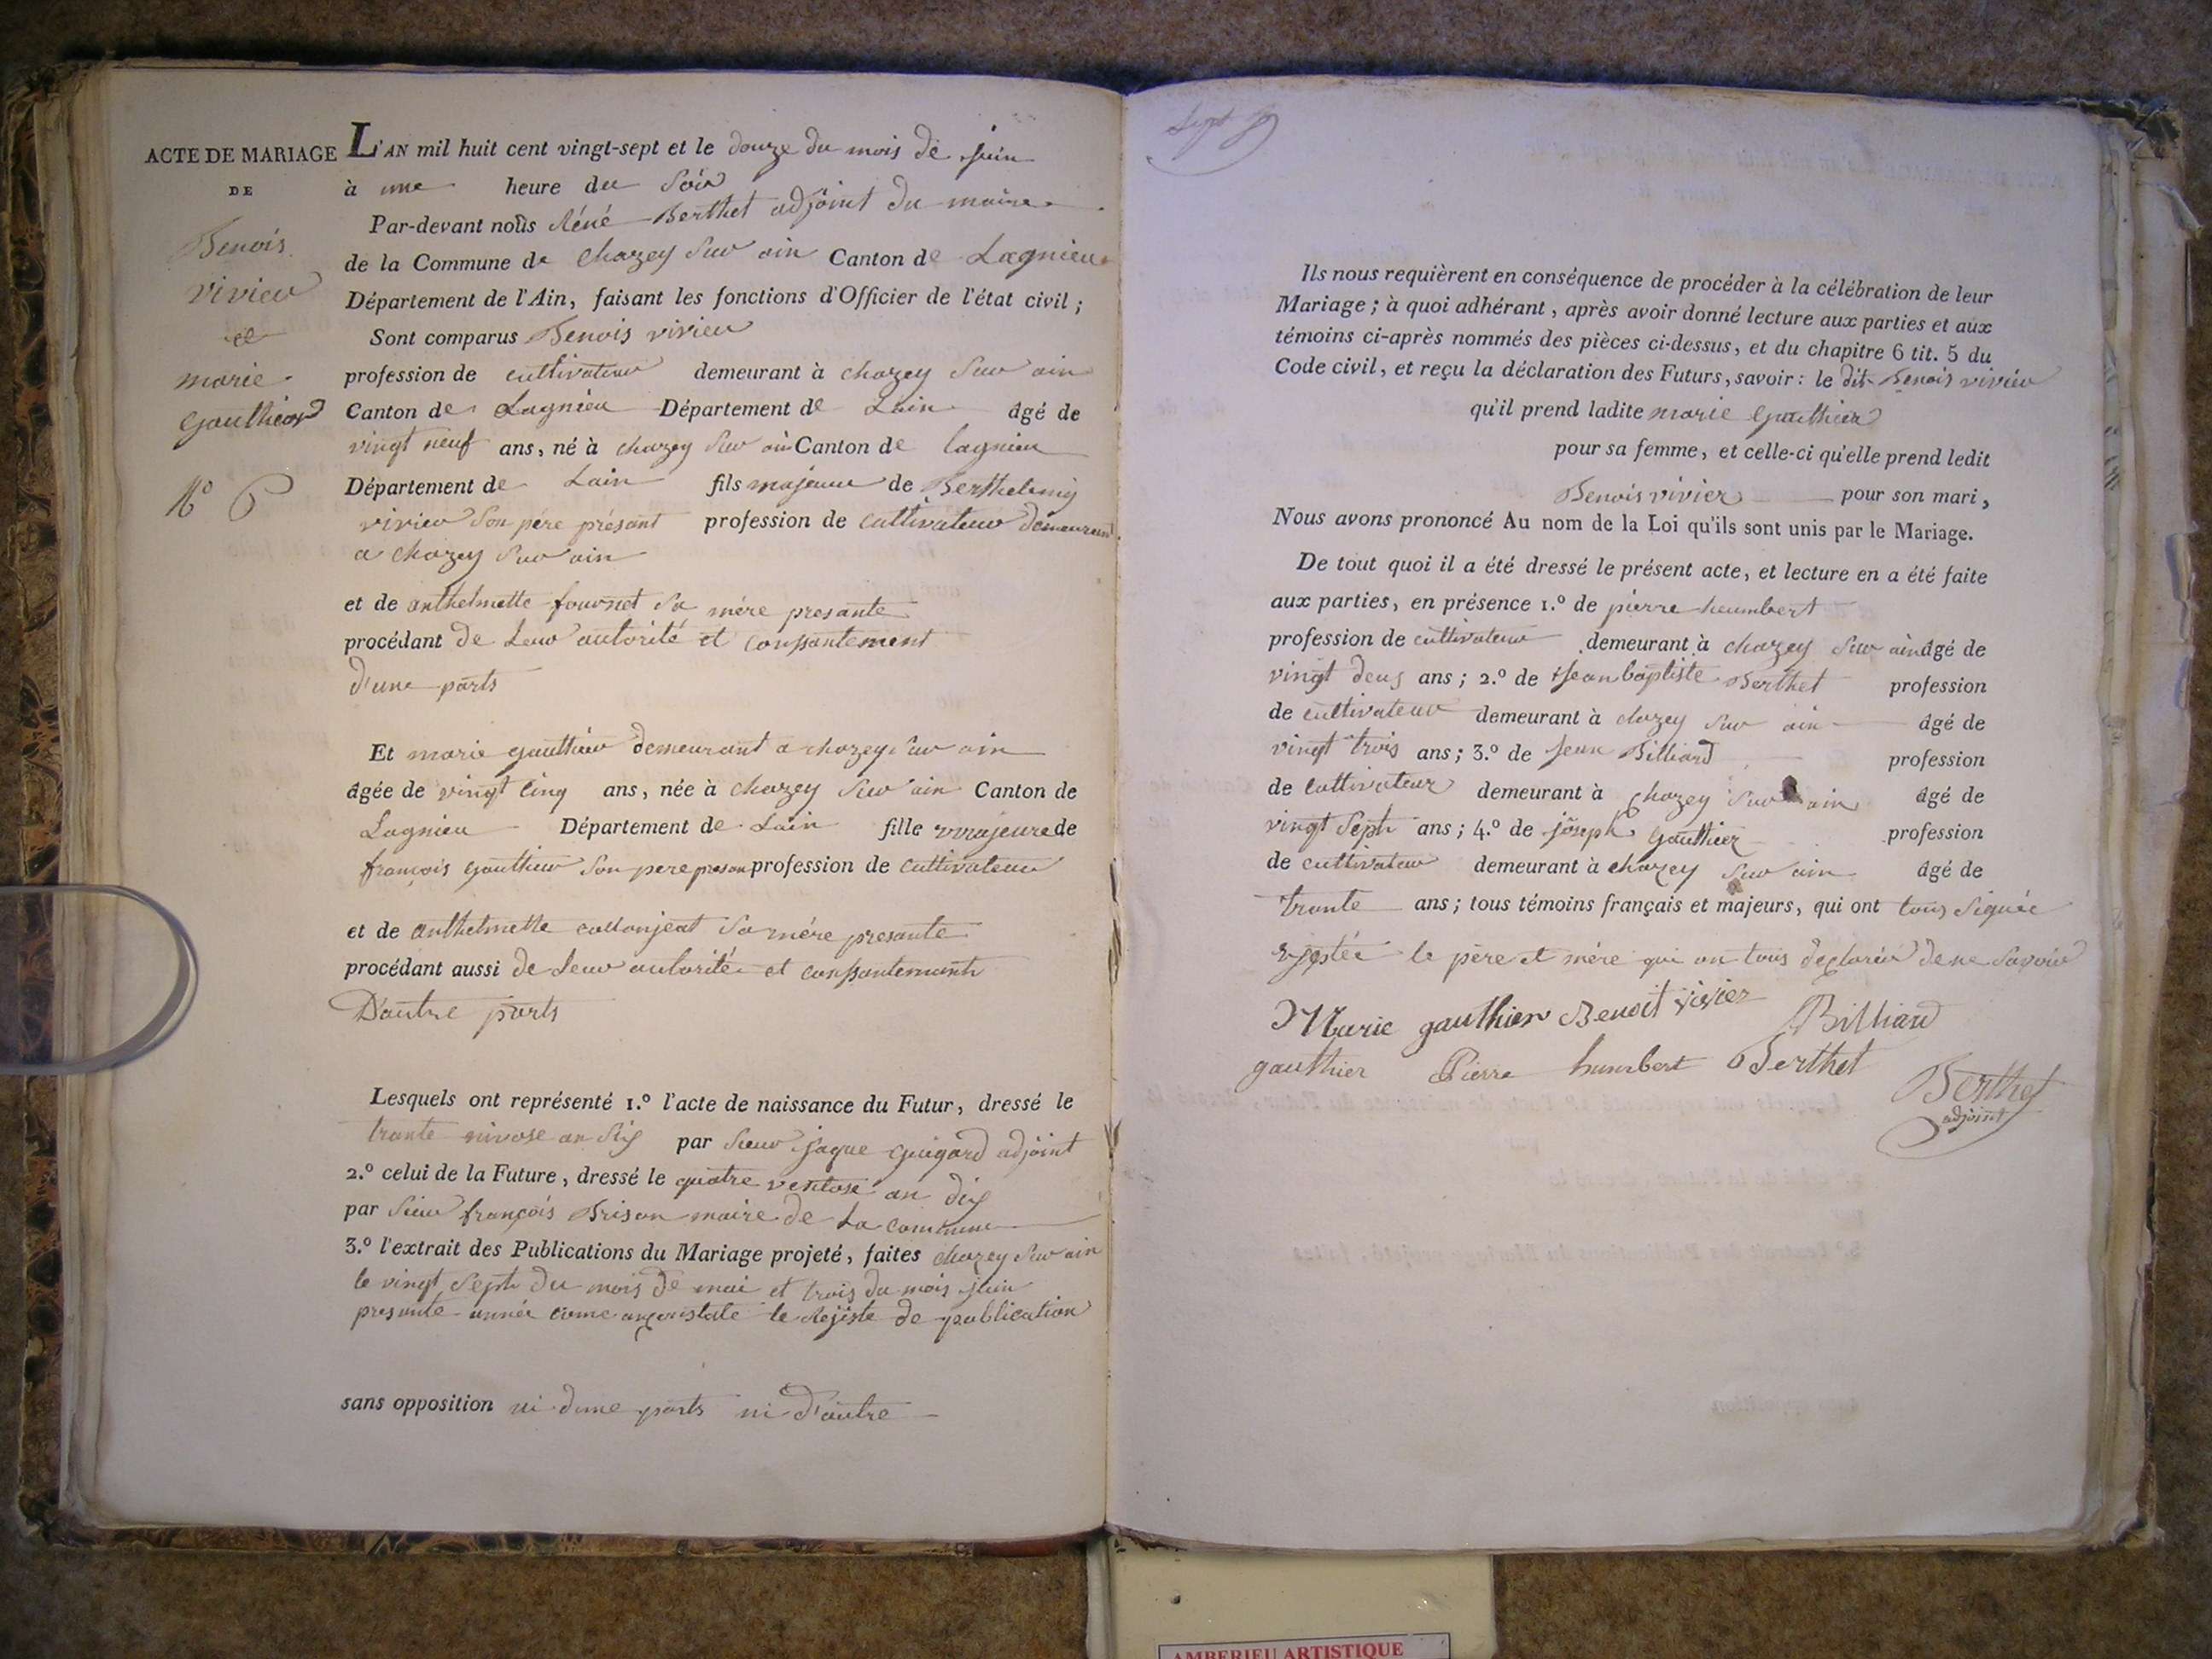 ACTE DE MARIAGE
DE
Benois
vivier
et
marie
gauthier
N.o 6
L'AN mil huit cent vingt-sept et le douze du mois de juin
à une heure du Soir
Par-devant nous Réné Berthet adjoint du maire
de la Commune de chazey Sur ain Canton de Lagnieu
Département de l'Ain, faisant les fonctions d'Officier de l'état civil ;
Sont comparus Benois vivier
profession de cultivateur demeurant à chazey Sur ain
Canton de Lagnieu Département de Lain âgé de
vingt neuf ans, né à chazey Sur ain Canton de lagnieu
Département de Lain fils majeur de Berthelemy
vivier Son père présant profession de cultivateur demeurant
a chazey Sur ain
et de anthelmette fournet Sa mère presante
procédant de Leur autorité et conssantement
d'une parts
Et marie gauthier demeurant a chazey Sur ain
âgée de vingt cinq ans, née à chazey Sur ain Canton de
Lagnieu Département de Lain fille majeure de
françois gauthier Son pere presan profession de cultivateur
et de anthelmette collonjeat Sa mére presante
procédant aussi de Leur autorité et conssantemant
D'autre parts
Lesquels ont représenté 1.º l'acte de naissance du Futur, dressé le
trante nivose an Six par Sieur jaque guigard adjoint
2.º celui de la Future, dressé le quatre ventose an dix
par Sieur françois Brison maire de La commune
3.º l'extrait des Publications du Mariage projeté, faites chazey Sur ain
le vingt Sept du mois de mai et trois du mois juin
presante année come le Rejiste de publication
sans opposition ni dune parts ni d'autre
Sept
Ils nous requièrent en conséquence de procéder à la célébration de leur
Mariage ; à quoi adhérant, après avoir donné lecture aux parties et aux
témoins ci-après nommés des pièces ci-dessus, et du chapitre 6 tit. 5 du
Code civil, et reçu la déclaration des Futurs, savoir : le dit Benois vivier
qu'il prend ladite marie gauthier
pour sa femme, et celle-ci qu'elle prend ledit
Benois vivier pour son mari,
Nous avons prononcé Au nom de la Loi qu'ils sont unis par le Mariage.
De tout quoi il a été dressé le présent acte, et lecture en a été faite
aux parties, en présence 1.º de pierre heumbert
profession de cultivateur demeurant à chazey Sur ain âgé de
vingt deus ans ; 2.º de Jean baptiste Berthet profession
de cultivateur demeurant à chazey Sur ain âgé de
vingt trois ans ; 3.º de Jean Billiard profession
de cultivateur demeurant à chazey Sur ain âgé de
vingt Sept ans ; 4.º de joseph gauthier profession
de cultivateur demeurant à chazey Sur ain âgé de
trante ans ; tous témoins français et majeurs, qui ont tous Signée
le père et mére qui on tous declarér de ne Savoir
Marie gauthier Benoit vivier Billiard
gauthier Pierre humbert Berthet
Berthet
adjoint
AMBERIEU ARTISTIQUE